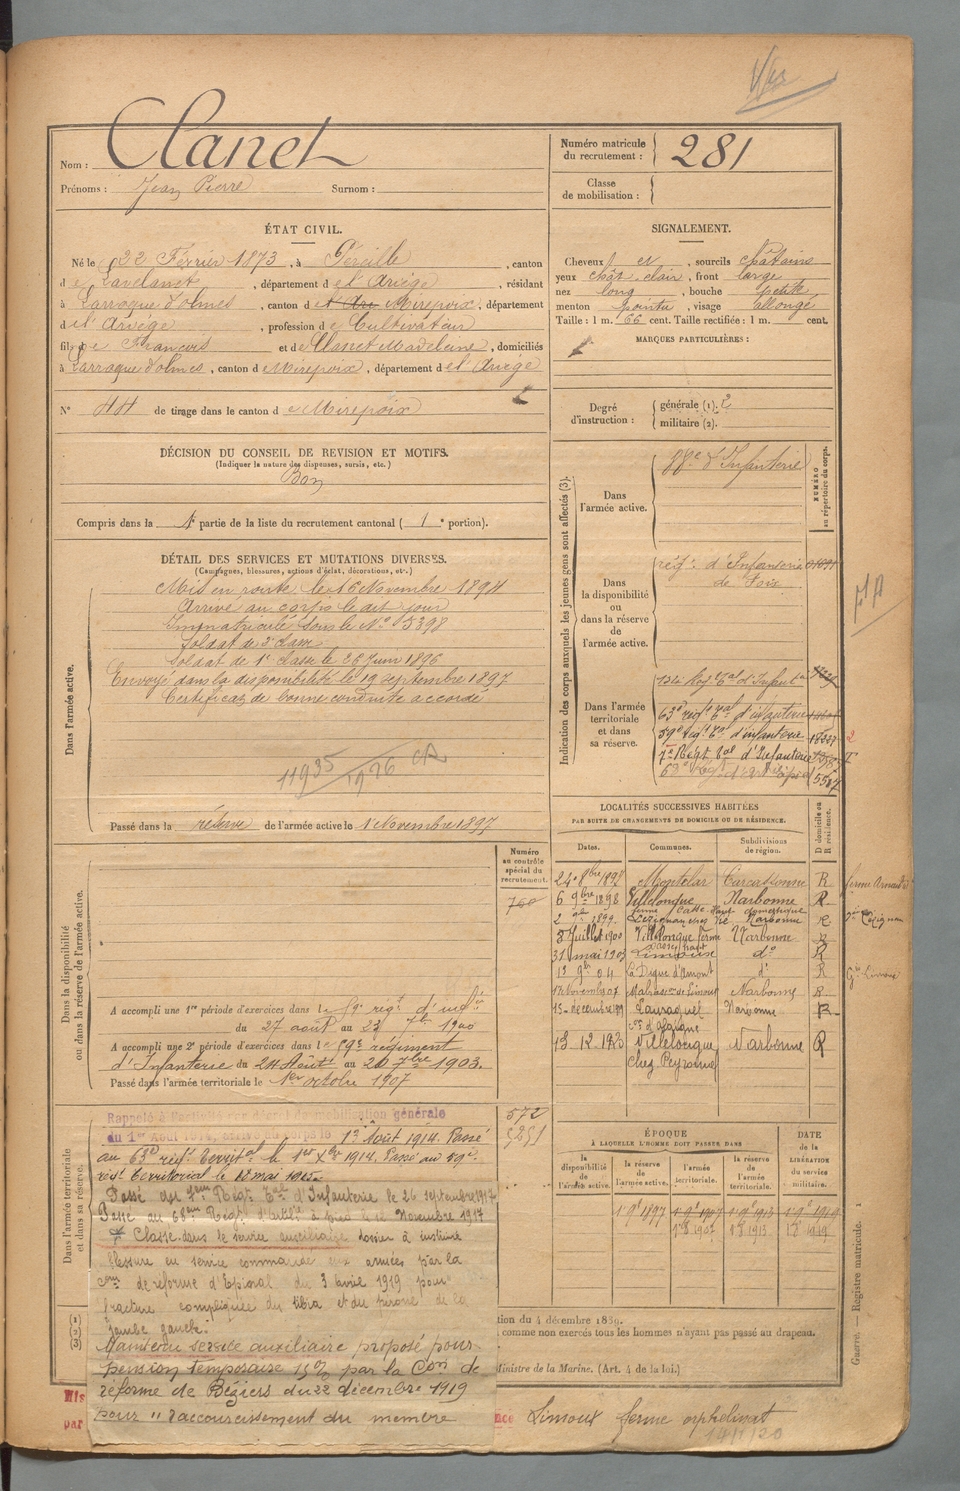 Nom : Clanet
Prénoms : Jean Pierre Surnom :
Numéro matricule du recrutement : 281
Classe de mobilisation :
ÉTAT CIVIL.
Né le 22 Février 1873, à Péreille, canton
de Lavelanet, département de l'Ariège, résidant
à Larroque d'olmes, canton de Mirepoix, département
de l'Ariège, profession de Cultivateur
fils de François et de Clanet Madeleine, domiciliés
à Larroque d'olmes, canton de Mirepoix, département de l'Ariège
N° 44 de tirage dans le canton de Mirepoix
SIGNALEMENT.
Cheveux et, sourcils châtains
yeux chât clair, front large
nez long, bouche petite
menton pointu, visage allongé
Taille : 1 m. 66 cent. Taille rectifiée : 1 m. cent.
MARQUES PARTICULIÈRES :
Degré d'instruction : générale (1). 2
militaire (2).
DÉCISION DU CONSEIL DE REVISION ET MOTIFS.
(Indiquer la nature des dispenses, sursis, etc.)
Bon
Compris dans la 1e partie de la liste du recrutement cantonal ( 1e portion).
DÉTAIL DES SERVICES ET MUTATIONS DIVERSES.
(Campagnes, blessures, actions d'éclat, décorations, etc.)
Dans l'armée active.
Mis en route le 16 Novembre 1894
Arrivé au corps le dit jour
Immatriculé sous le N° 5398
Soldat de 2e classe
Soldat de 1e classe le 26 juin 1896
Envoyé dans la disponibilité le 19 septembre 1897
Certificat de bonne conduite accordé
11935
1926 CR
Passé dans la réserve de l'armée active le 1 Novembre 1897
Indication des corps auxquels les jeunes gens sont affectés (3).
NUMÉRO au répertoire du corps.
Dans l'armée active.
88e d'Infanterie
Dans la disponibilité ou dans la réserve de l'armée active.
régt d'Infanterie
de Foix
Dans l'armée territoriale et dans sa réserve.
134 Reg Tal d'Infantie
63e régt Tal d'infanterie
59e régt Tal d'infanterie 18337
7e Régt Tal d'Infanterie
5567
LOCALITÉS SUCCESSIVES HABITÉES
PAR SUITE DE CHANGEMENTS DE DOMICILE OU DE RÉSIDENCE.
Dates. Communes. Subdivisions de région. D domicile ou R résidence.
24 8bre 1898 Carcassonne R
6 9bre 1898 Villelongue Narbonne R
2 1899 Lézignan Narbonne R
8 Juillet 1900 Villelongue ferme Narbonne R
31 mai 1903 Limoux do R
13 04 La Digne d'Amont do R
17 Novembre 07 Malras Limoux Narbonne R
15 décembre Lauraguel Narbonne R
13 12 1923 Villelongue Narbonne R
chez Peyronnel
Numéro au contrôle spécial du recrutement.
760
Dans la disponibilité ou dans la réserve de l'armée active.
A accompli une 1re période d'exercices dans le 59e régt d'infie
du 27 août au 23 7bre 1900
A accompli une 2e période d'exercices dans le 59e régiment
d'Infanterie du 24 Août au 20 7bre 1903.
Passé dans l'armée territoriale le 1er octobre 1907
Dans l'armée territoriale et dans sa réserve.
Rappelé à l'activité par décret de mobilisation générale
du 1er Août 1914, arrivé au corps le 13 Août 1914. Passé
au 63e régt territal le 1er Xbre 1914. Passé au 59e
régt territorial le 18 mai 1915
Passé au 7eme Régt Tal d'Infanterie le 26 septembre 1917
Passé au 68eme Régt d'artilie à pied le 12 Novembre 1917
Classé dans le service auxiliaire dossier à instruire
blessure en service commandé aux armées par la
Com de réforme d'Epinal du 3 avril 1919 pour
fracture compliquée du tibia et du péroné de la
jambe gauche.
Maintenu service auxiliaire proposé pour
pension temporaire 15% par la Con de
réforme de Béziers du 22 décembre 1919
pour " raccourcissement du membre
572
5251
ÉPOQUE
À LAQUELLE L'HOMME DOIT PASSER DANS
la disponibilité de l'armée active. la réserve de l'armée active. l'armée territoriale. la réserve de l'armée territoriale.
DATE de la LIBÉRATION du service militaire.
1 9e 1897 1 9e 1907 1 9e 1913 1 9e 1919
1907 1913 1919
tion du 4 décembre 1889.
comme non exercés tous les hommes n'ayant pas passé au drapeau.
Ministre de la Marine. (Art. 4 de la loi.)
Mis
par
nce Limoux ferme orphelinat
14/1/20
Guerre. — Registre matricule. 1